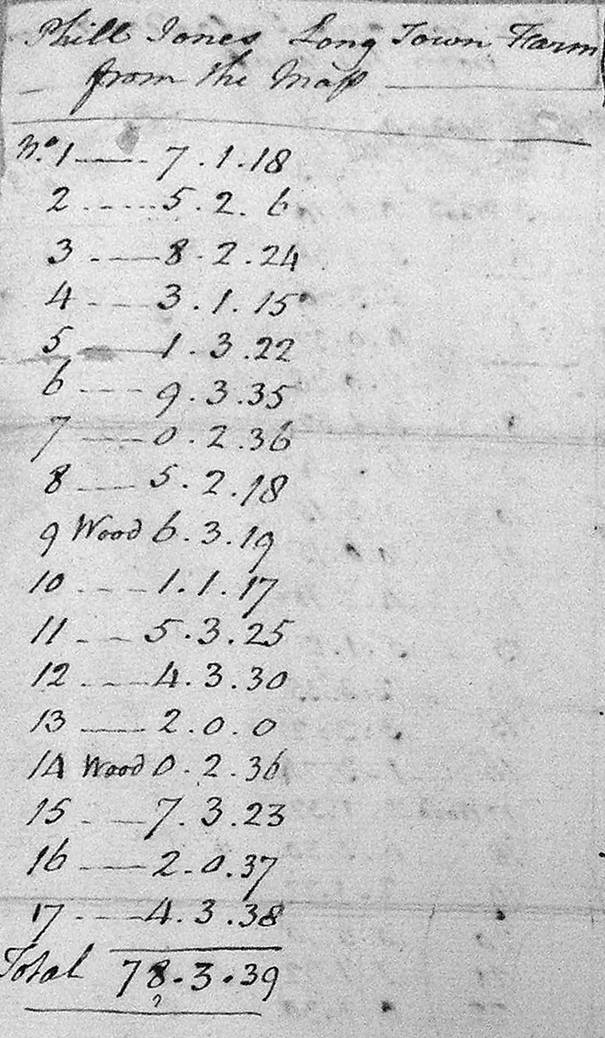 Phill Jones Long Town Farm
from the Map
No. 1 — 7.1.18
2 — 5.2.6
3 — 8.2.24
4 — 3.1.15
5 — 1.3.22
6 — 9.3.35
7 — 0.2.36
8 — 5.2.18
9 Wood 6.3.19
10 — 1.1.17
11 — 5.3.25
12 — 4.3.30
13 — 2.0.0
14 Wood 0.2.36
15 — 7.3.23
16 — 2.0.37
17 — 4.3.38
Total 78.3.39